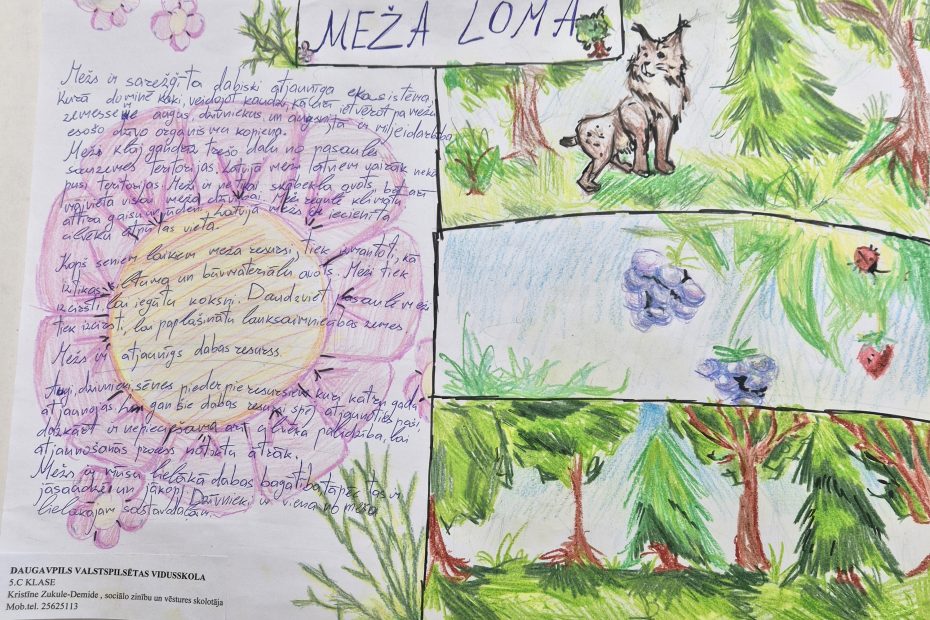 MEŽA LOMA
Mežs ir sarežģīta dabiski atjaunīga ekosistēma,
kurā dominē koki, veidojot
zemessegē augus, dzīvniekus un
esošo dzīvo organismu kopiena.
Mežs klāj gandrīz trešo daļu no pasaules
sauszemes teritorijas. Latvijā meži aizņem vairāk nekā
pusi teritorijas. Meži ir ne tikai skābekļa avots, bet arī
mājvieta visai meža dzīvībai. Mežs regulē klimatu,
attīra gaisu un ūdeni. Latvijā mežs ir iecienīta
cilvēku atpūtas vieta.
Kopš seniem laikiem meža resursi tiek izmantoti, kā
iztikas, siltuma un būvmateriālu avots. Meži tiek
izcirsti, lai iegūtu koksni. Daudzviet pasaulē meži
tiek izcirsti, lai paplašinātu lauksaimniecības zemes
Mežs ir atjaunīgs dabas resurss.
Augi, dzīvnieki, sēnes pieder pie resursiem kuri katru gadu
atjaunojas. gan šie dabas resursi spēj atjaunoties paši,
dažkārt ir nepieciešama arī cilvēka palīdzība, lai
atjaunošanās process notiktu ātrāk.
Mežs ir mūsu lielākā dabas bagātība tāpēc tas ir
jāsaudzē un jākopj. Dzīvnieki ir viena no meža
lielākajām sastāvdaļām.
DAUGAVPILS VALSTSPILSĒTAS VIDUSSKOLA
5.C KLASE
Kristīne Zukule-Demide , sociālo zinību un vēstures skolotāja
Mob.tel. 25625113